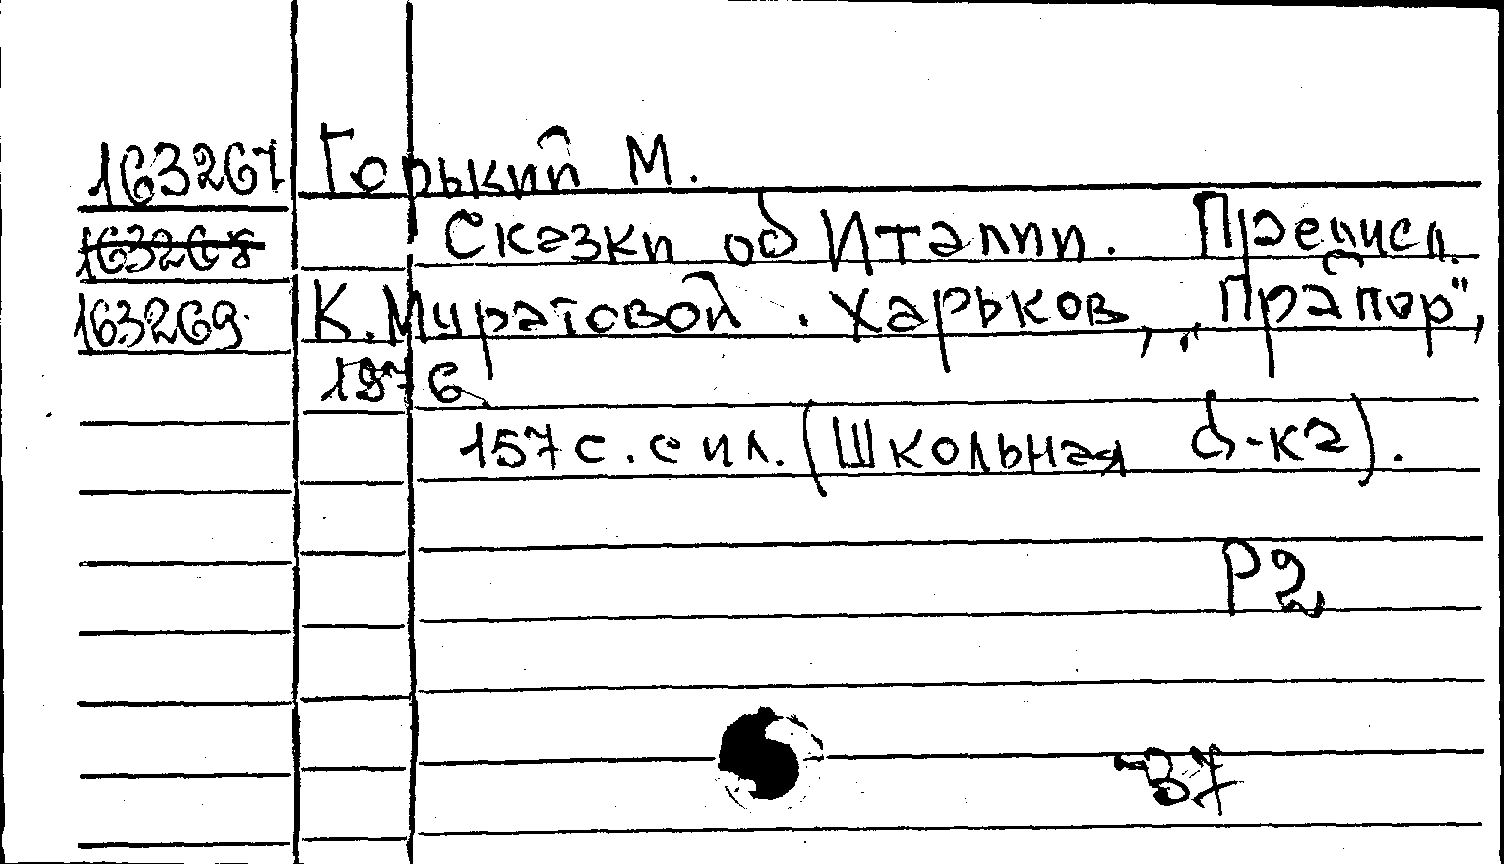 163267 Горький М.
163268 Сказки об Италии. Предисл.
163269 К. Муратовой. Харьков, „Прапор",
1976.
157 с. с ил. (Школьная б-ка).
Р2